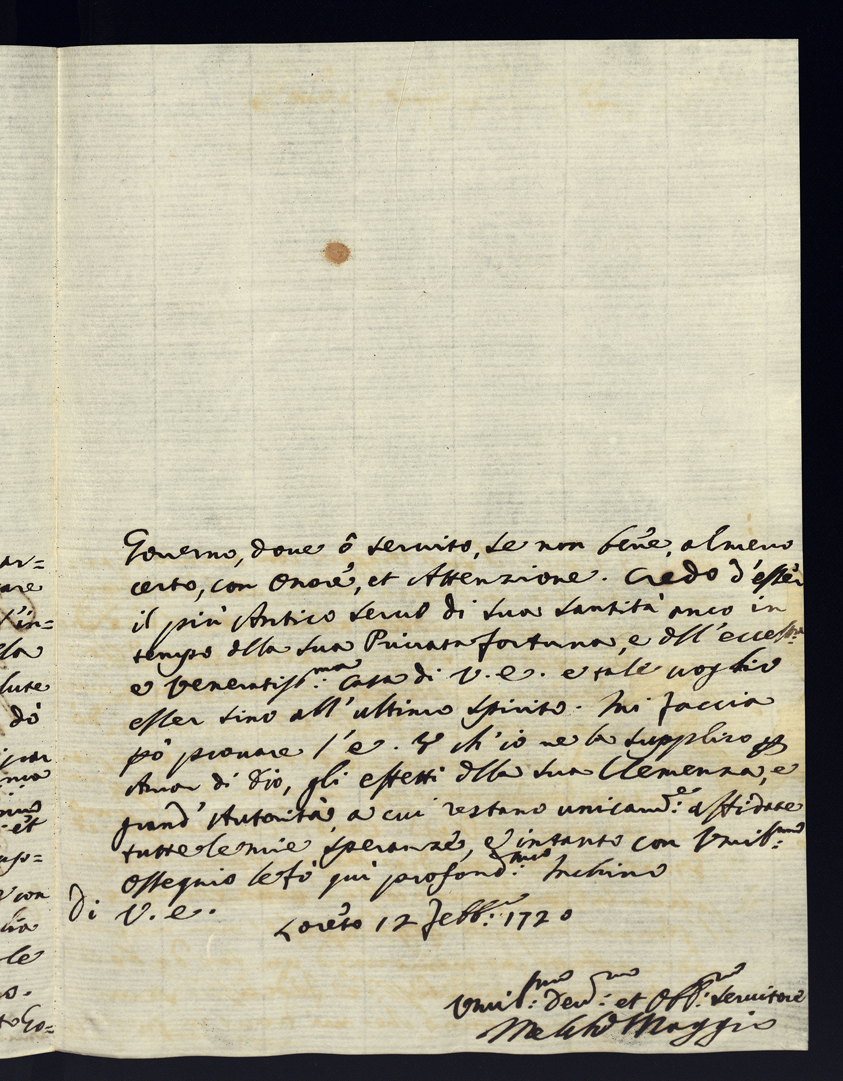 Governo, doue ò seruito, se non bene, almeno
certo, con Onore, et Attenzione. Credo d'esser
il più Antico seruo di sua santità anco in
tempo dlla sua Priuata fortuna, e dll'eccelma:
e Veneratissma: Casa di V. e. e tale uoglio
esser sino all'ultimo spirito. Mi faccia
pò prouare l'e. V ch'io ne la supplico p
Amor di Dio, gli effetti dlla sua Clemenza, e
grand'Autorità, a cui restano unicamᵉ: affidate
tutte le mie speranze, e intanto con Vmilmo:
Ossequio le fò qui profondmo: Inchino
Di V. e.
Loreto 12 Febbr: 1720
Vmilmo: Deumo: et Obbmo: Seruitore
Maggio
ar=
tare
l'in=
lla
lute
dò
et
con
le
to Go=